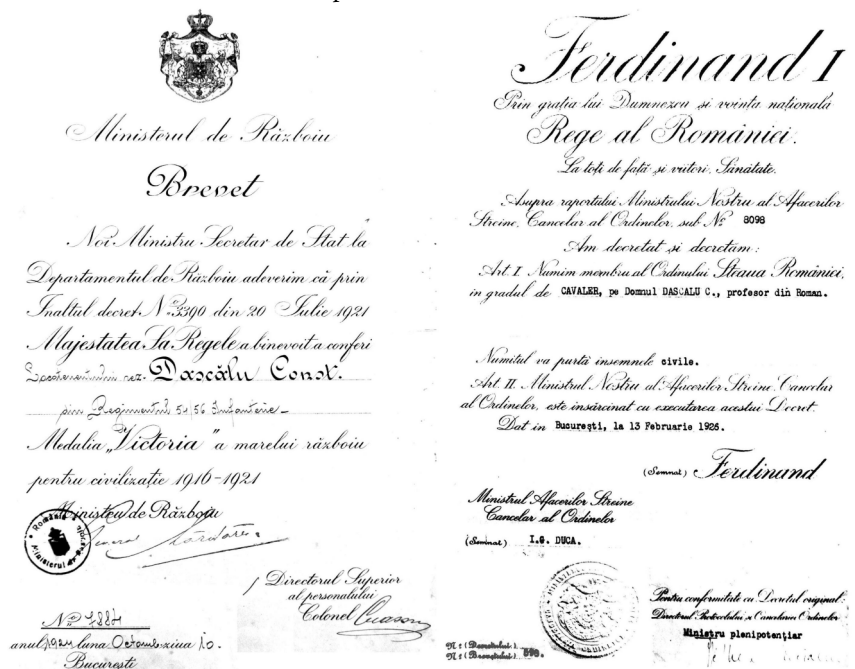 Ministerul de Războiu
Brevet
Noi Ministru Secretar de Stat la
Departamentul de Război adeverim că prin
Inaltul decret No 3390 din 20 Iulie 1921
Majestatea Sa Regele a binevoit a conferi
rez. Dascălu Const.
din Regimentul 54/56 Infanterie
Medalia „Victoria" a marelui războiu
pentru civilizație 1916-1921
de Războiu
România
Directorul Superior
al personalului
Colonel
No 7884
anul 1924 luna Octomb ziua 10.
București
Ferdinand I
Prin grația lui Dumnezeu și voința națională
Rege al României.
La toți de față și viitori, Sănătate.
Asupra raportului Ministrului Nostru al Afacerilor
Streine, Cancelar al Ordinelor, sub No 8098
Am decretat și decretăm:
Art. I Numim membru al Ordinului Steaua României,
in gradul de CAVALER, pe Domnul DASCALU C., profesor din Roman.
Numitul va purtă insemnele civile.
Art. II. Ministrul Nostru al Afacerilor Streine, Cancelar
al Ordinelor, este insărcinat cu executarea acestui Decret.
Dat in București, la 13 Februarie 1926.
(Semnat) Ferdinand
Ministrul Afacerilor Streine
Cancelar al Ordinelor
(Semnat) I.G. DUCA.
Pentru conformitate cu Decretul original:
Directorul Protocolului și Cancelariei Ordinelor
Ministru plenipotențiar
No (Decretului)
No (Brevetului) 598.